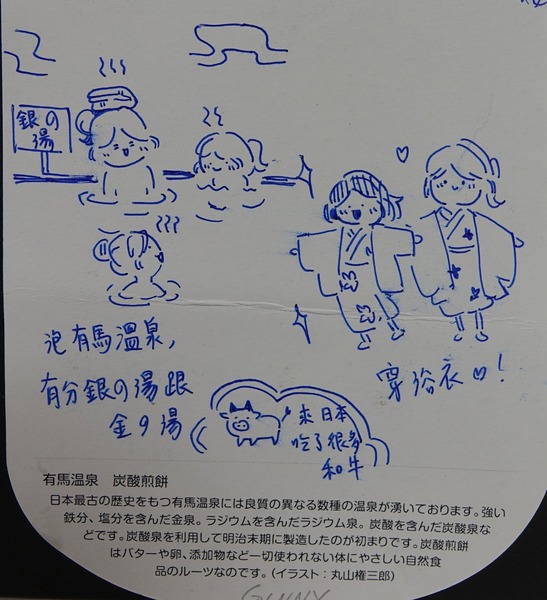 銀の
湯
泡有馬溫泉,
有分銀の湯跟
金の湯
穿浴衣♡!
來日本
吃了很多
和牛
有馬温泉 炭酸煎餅
日本最古の歴史をもつ有馬温泉には良質の異なる数種の温泉が湧いております。強い
鉄分、塩分を含んだ金泉。ラジウムを含んだラジウム泉。炭酸を含んだ炭酸泉な
どです。炭酸泉を利用して明治末期に製造したのが初まりです。炭酸煎餅
はバターや卵、添加物など一切使われない体にやさしい自然食
品のルーツなのです。(イラスト:丸山権三郎)